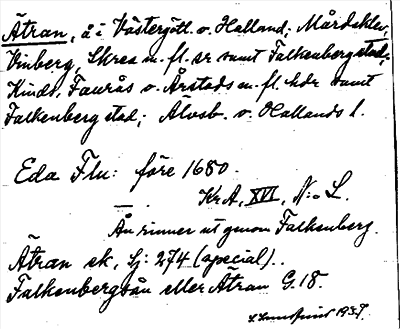 Ätran, å i Västergötl. o. Halland; Mårdaklev,
Vinberg, Skrea m. fl. sr samt Falkenberg stad;
Kinds, Faurås o. Årstads m. fl. hdr samt
Falkenberg stad; Älvsb. o. Hallands l.
Eda Flu: före 1680.
Kr.A, XVI, N:o L.
Ån rinner ut genom Falkenberg.
Ätran ek, Sj: 274 (special).
Falkenbergsån eller Ätran G. 18.
1937.